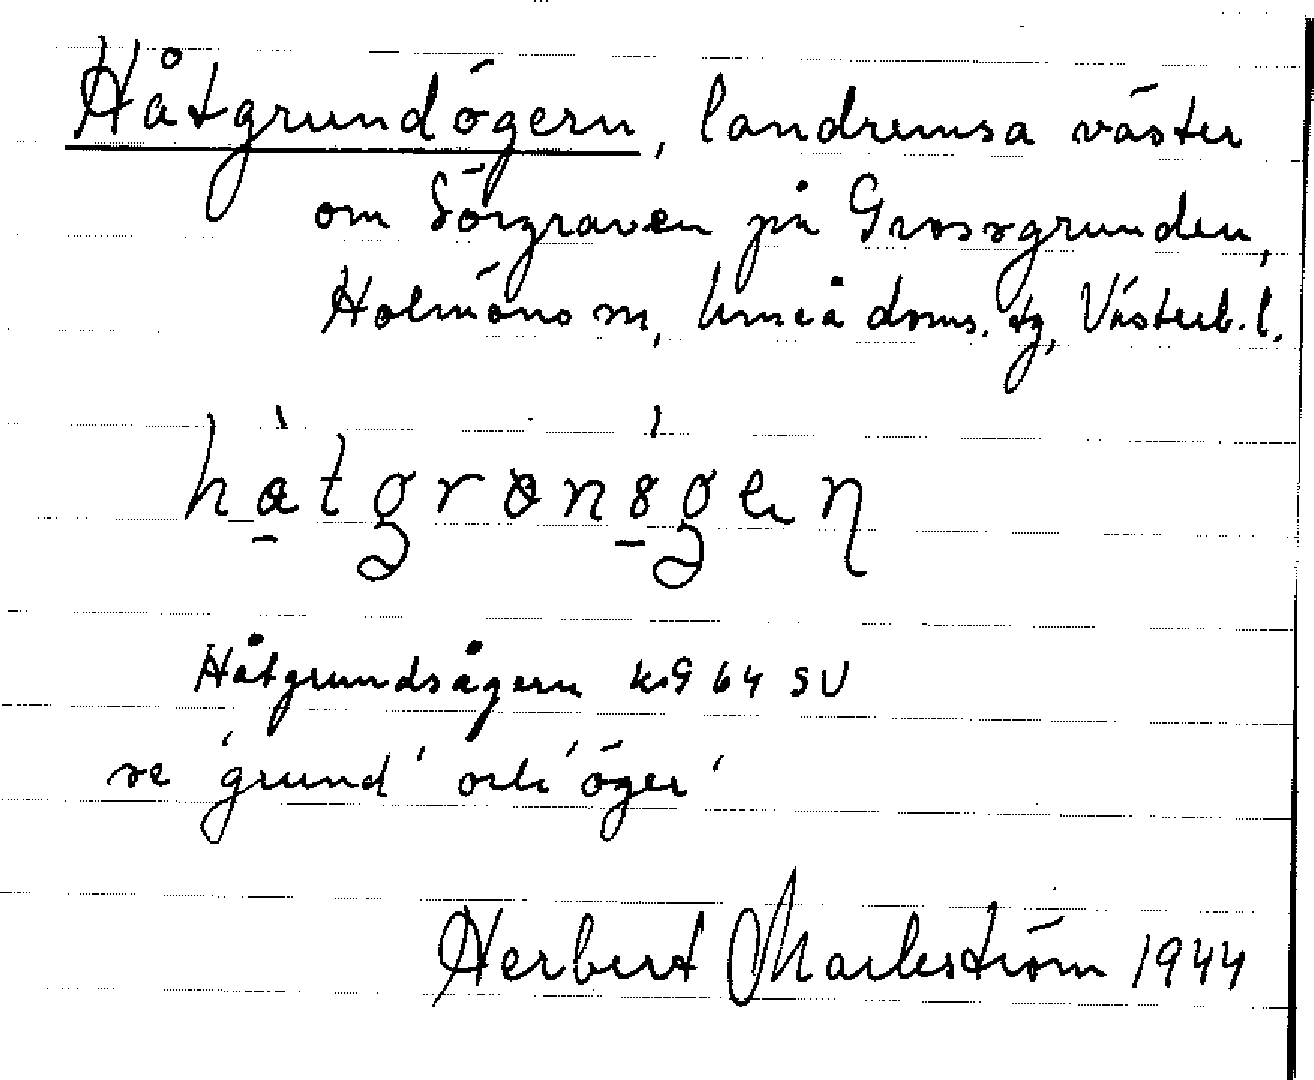 Håtgrundögern, landremsa väster
om Sörgraven på Grossgrunden,
Holmöns sn, Umeå doms. tg, Västerb. l.
Håtgrundsågern kig 64 SV
se 'grund' och 'öger'
Herbert Markström 1944